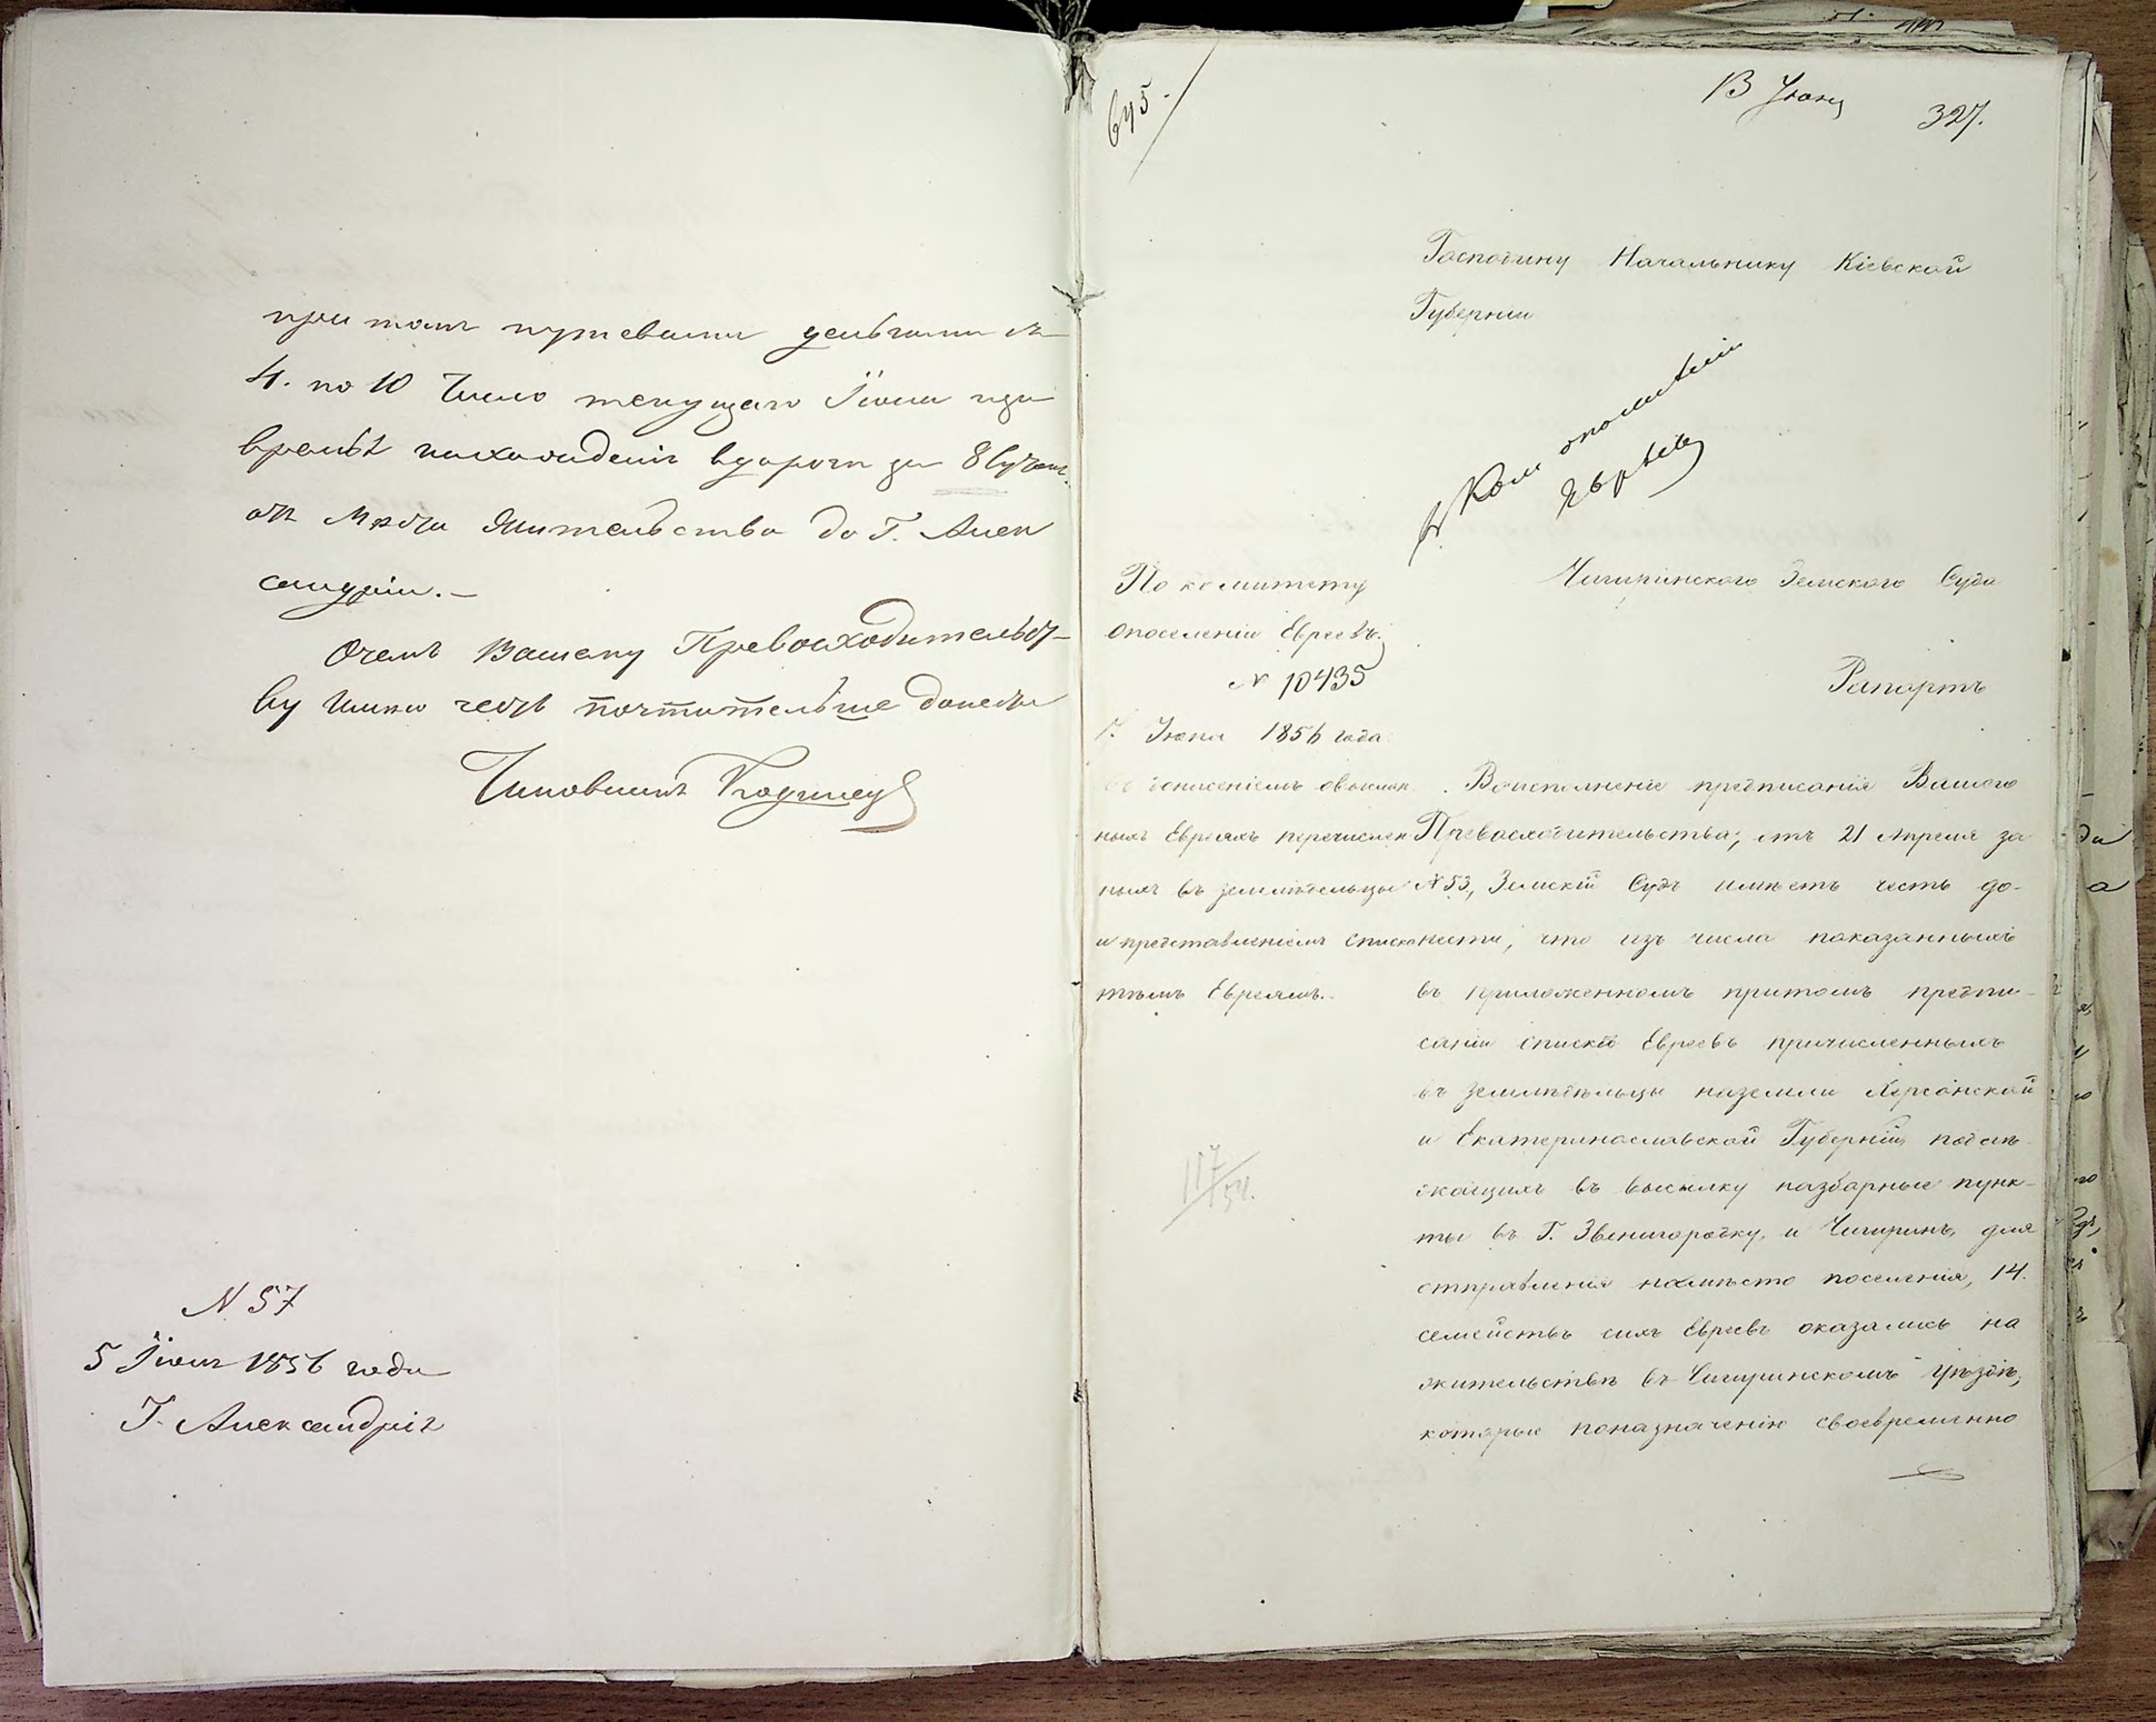 при томъ путевыми деньгами съ
4. по 10 Число текущаго Іюня
время нахожденія вдороги за 8 сутокъ
отъ Мѣста Жительства до Г. Алек
сандріи.-
Очемъ Вашему Превосходительст-
ву Имѣю честь почтительнѣйше донести
Чиновникъ
N 57
5 Іюня 1856 года
Г. Александрія
645.
13 Іюня
327.
Господину Начальнику Кіевской
Губерніи
Въ Ком опоселеніи
Евреевъ
По комитету
опоселеніи Евреевъ.
N 10435
7. Іюня 1856 года
Съ донесеніемъ овыслан
ныхъ Евреяхъ перечислен
ныхъ въ земледѣльцы
и представленіемъ списка
тѣмъ Евреямъ.
117/54.
Чигиринскаго Земскаго Суда
Рапортъ
Воисполненіе предписанія Вашего
Превосходительства, отъ 21 Апреля за
N 53, Земскій Судъ имѣетъ честь до-
нести, что изъ числа показанныхъ
въ приложенномъ притомъ предпи-
саніи спискѣ Евреевъ причисленныхъ
въ земледѣльцы наземли Херсонской
и Екатеринославской Губерній, подле-
жащихъ въ высылку назборные пунк-
ты въ Г. Звенигородку, и Чигиринъ, для
отправленія намѣсто поселенія, 14.
семействъ сихъ Евреевъ оказались на
жительствѣ въ Чигиринскомъ Уѣздѣ,
которые поназначенію своевременно